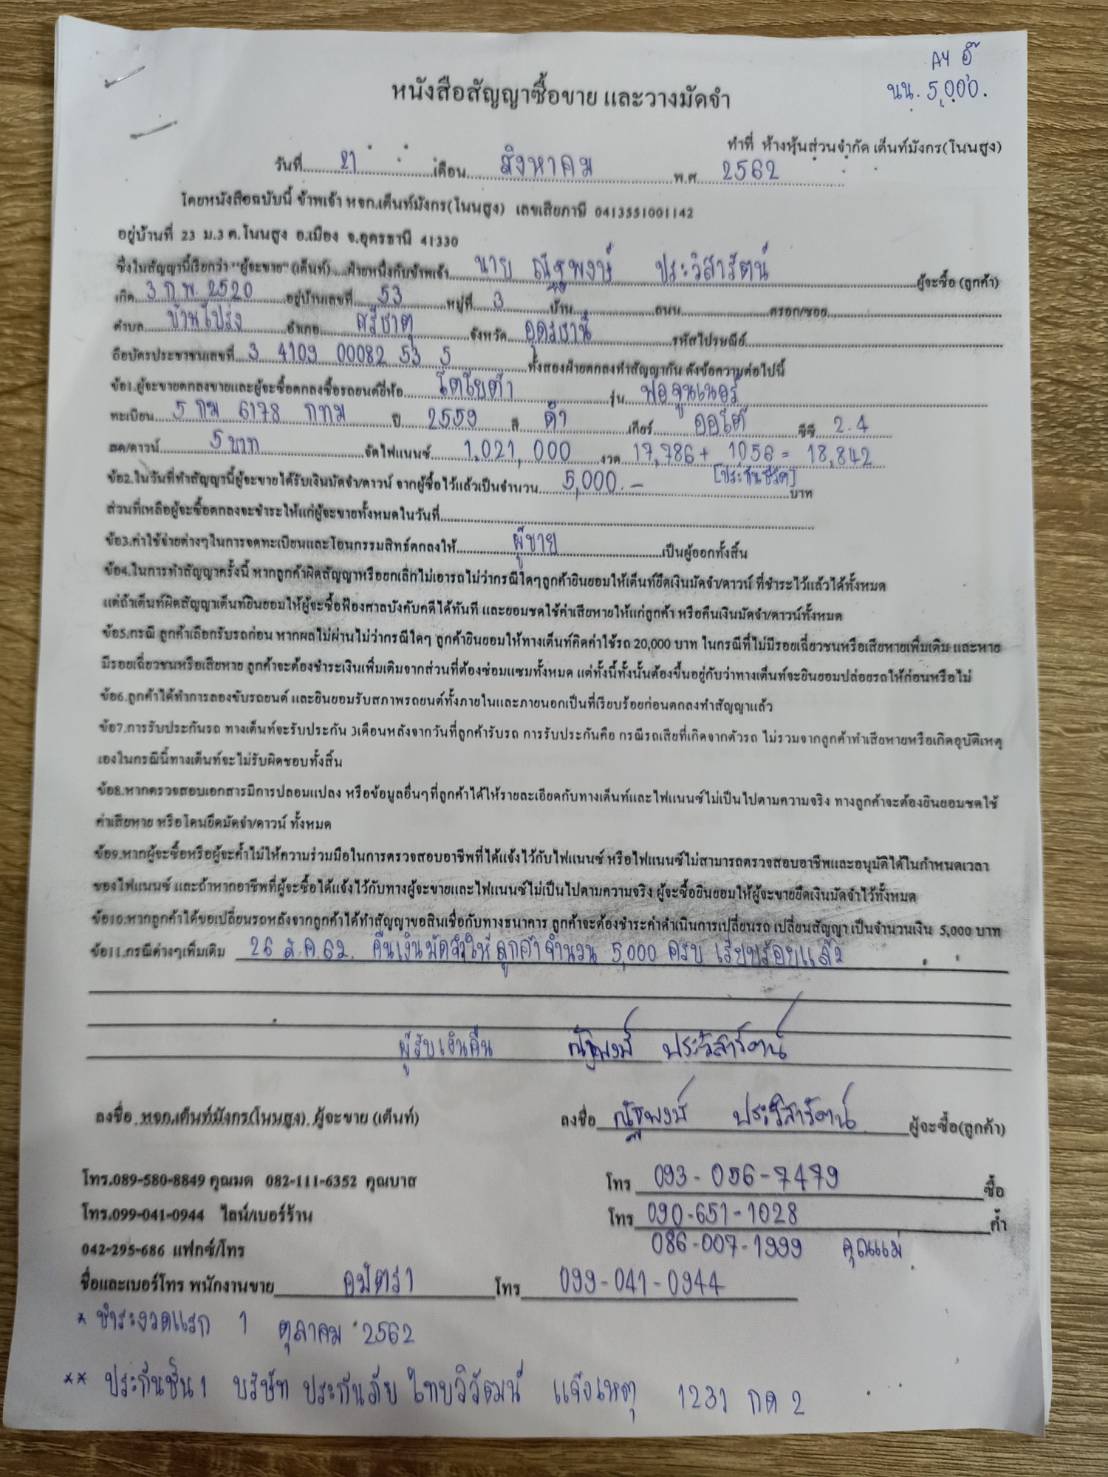 AY อี๊
นน. 5,000.
หนังสือสัญญาซื้อขาย และวางมัดจำ
ทำที่ ห้างหุ้นส่วนจำกัด เต็นท์มังกร(โนนสูง)
วันที่ 21 เดือน สิงหาคม พ.ศ. 2562
โดยหนังสือฉบับนี้ ข้าพเจ้า หจก.เต็นท์มังกร(โนนสูง) เลขเสียภาษี 0413551001142
อยู่บ้านที่ 23 ม.3 ต.โนนสูง อ.เมือง จ.อุดรธานี 41330
ซึ่งในสัญญานี้เรียกว่า "ผู้จะขาย" (เต็นท์) ฝ่ายหนึ่งกับข้าพเจ้า นาย ณัฐพงษ์ ประวิสารัตน์ ผู้จะซื้อ (ลูกค้า)
เกิด 3 ก.พ. 2520 อยู่บ้านเลขที่ 53 หมู่ที่ 3 บ้าน ถนน ตรอก/ซอย
ตำบล บ้านโปร่ง อำเภอ ศรีธาตุ จังหวัด อุดรธานี รหัสไปรษณีย์
ถือบัตรประชาชนเลขที่ 3 4109 00082 53 5 ทั้งสองฝ่ายตกลงทำสัญญากัน ดังข้อความต่อไปนี้
ข้อ1.ผู้จะขายตกลงขายและผู้จะซื้อตกลงซื้อรถยนต์ยี่ห้อ โตโยต้า รุ่น ฟอจูนเนอร์
ทะเบียน 5 กม 6178 กทม ปี 2559 สี ดำ เกียร์ ออโต้ ซีซี 2.4
สด/ดาวน์ 5 บาท จัดไฟแนนซ์ 1,021,000 งวด 17,786 + 1056 = 18,842
[ประกันชีวิต]
ข้อ2.ในวันที่ทำสัญญานี้ผู้จะขายได้รับเงินมัดจำ/ดาวน์ จากผู้ซื้อไว้แล้วเป็นจำนวน 5,000.- บาท
ส่วนที่เหลือผู้จะซื้อตกลงจะชำระให้แก่ผู้จะขายทั้งหมดในวันที่
ข้อ3.ค่าใช้จ่ายต่างๆในการจดทะเบียนและโอนกรรมสิทธิ์ตกลงให้ ผู้ขาย เป็นผู้ออกทั้งสิ้น
ข้อ4.ในการทำสัญญาครั้งนี้ หากลูกค้าผิดสัญญาหรือยกเลิกไม่เอารถไม่ว่ากรณีใดๆลูกค้ายินยอมให้เต็นท์ยึดเงินมัดจำ/ดาวน์ ที่ชำระไว้แล้วได้ทั้งหมด
แต่ถ้าเต็นท์ผิดสัญญาเต็นท์ยินยอมให้ผู้จะซื้อฟ้องศาลบังคับคดีได้ทันที และยอมชดใช้ค่าเสียหายให้แก่ลูกค้า หรือคืนเงินมัดจำ/ดาวน์ทั้งหมด
ข้อ5.กรณี ลูกค้าเลือกรับรถก่อน หากผลไม่ผ่านไม่ว่ากรณีใดๆ ลูกค้ายินยอมให้ทางเต็นท์คิดค่าใช้รถ 20,000 บาท ในกรณีที่ไม่มีรอยเฉี่ยวชนหรือเสียหายเพิ่มเติม และหาย
มีรอยเฉี่ยวชนหรือเสียหาย ลูกค้าจะต้องชำระเงินเพิ่มเติมจากส่วนที่ต้องซ่อมแซมทั้งหมด แต่ทั้งนี้ทั้งนั้นต้องขึ้นอยู่กับว่าทางเต็นท์จะยินยอมปล่อยรถให้ก่อนหรือไม่
ข้อ6.ลูกค้าได้ทำการลองขับรถยนต์ และยินยอมรับสภาพรถยนต์ทั้งภายในและภายนอกเป็นที่เรียบร้อยก่อนตกลงทำสัญญาแล้ว
ข้อ7.การรับประกันรถ ทางเต็นท์จะรับประกัน 3เดือนหลังจากวันที่ลูกค้ารับรถ การรับประกันคือ กรณีรถเสียที่เกิดจากตัวรถ ไม่รวมจากลูกค้าทำเสียหายหรือเกิดอุบัติเหตุ
เองในกรณีนี้ทางเต็นท์จะไม่รับผิดชอบทั้งสิ้น
ข้อ8.หากตรวจสอบเอกสารมีการปลอมแปลง หรือข้อมูลอื่นๆที่ลูกค้าได้ให้รายละเอียดกับทางเต็นท์และไฟแนนซ์ไม่เป็นไปตามความจริง ทางลูกค้าจะต้องยินยอมชดใช้
ค่าเสียหาย หรือโดนยึดมัดจำ/ดาวน์ ทั้งหมด
ข้อ9.หากผู้จะซื้อหรือผู้จะค้ำไม่ให้ความร่วมมือในการตรวจสอบอาชีพที่ได้แจ้งไว้กับไฟแนนซ์ หรือไฟแนนซ์ไม่สามารถตรวจสอบอาชีพและอนุมัติได้ในกำหนดเวลา
ของไฟแนนซ์ และถ้าหากอาชีพที่ผู้จะซื้อได้แจ้งไว้กับทางผู้จะขายและไฟแนนซ์ไม่เป็นไปตามความจริง ผู้จะซื้อยินยอมให้ผู้จะขายยึดเงินมัดจำไว้ทั้งหมด
ข้อ10.หากลูกค้าได้ขอเปลี่ยนรถหลังจากลูกค้าได้ทำสัญญาขอสินเชื่อกับทางธนาคาร ลูกค้าจะต้องชำระค่าดำเนินการเปลี่ยนรถ เปลี่ยนสัญญา เป็นจำนวนเงิน 5,000 บาท
ข้อ11.กรณีต่างๆเพิ่มเติม 26 ส.ค.62. คืนเงินมัดจำให้ลูกค้าจำนวน 5,000 ครบ เรียบร้อยแล้ว
ผู้รับเงินคืน ณัฐพงษ์ ประวิสารัตน์
ลงชื่อ หจก.เต็นท์มังกร(โนนสูง) ผู้จะขาย (เต็นท์) ลงชื่อ ณัฐพงษ์ ประวิสารัตน์ ผู้จะซื้อ(ลูกค้า)
โทร.089-580-8849 คุณมด 082-111-6352 คุณบาส โทร 093-056-7479 ซื้อ
โทร.099-041-0944 ไลน์/เบอร์ร้าน โทร 090-651-1028 ค้ำ
042-295-686 แฟกซ์/โทร 086-007-1999 คุณแม่
ชื่อและเบอร์โทร พนักงานขาย อมิตรา โทร 099-041-0944
* ชำระงวดแรก 1 ตุลาคม 2562
** ประกันชั้น 1 บริษัท ประกันภัย ไทยวิวัฒน์ แจ้งเหตุ 1231 กด 2